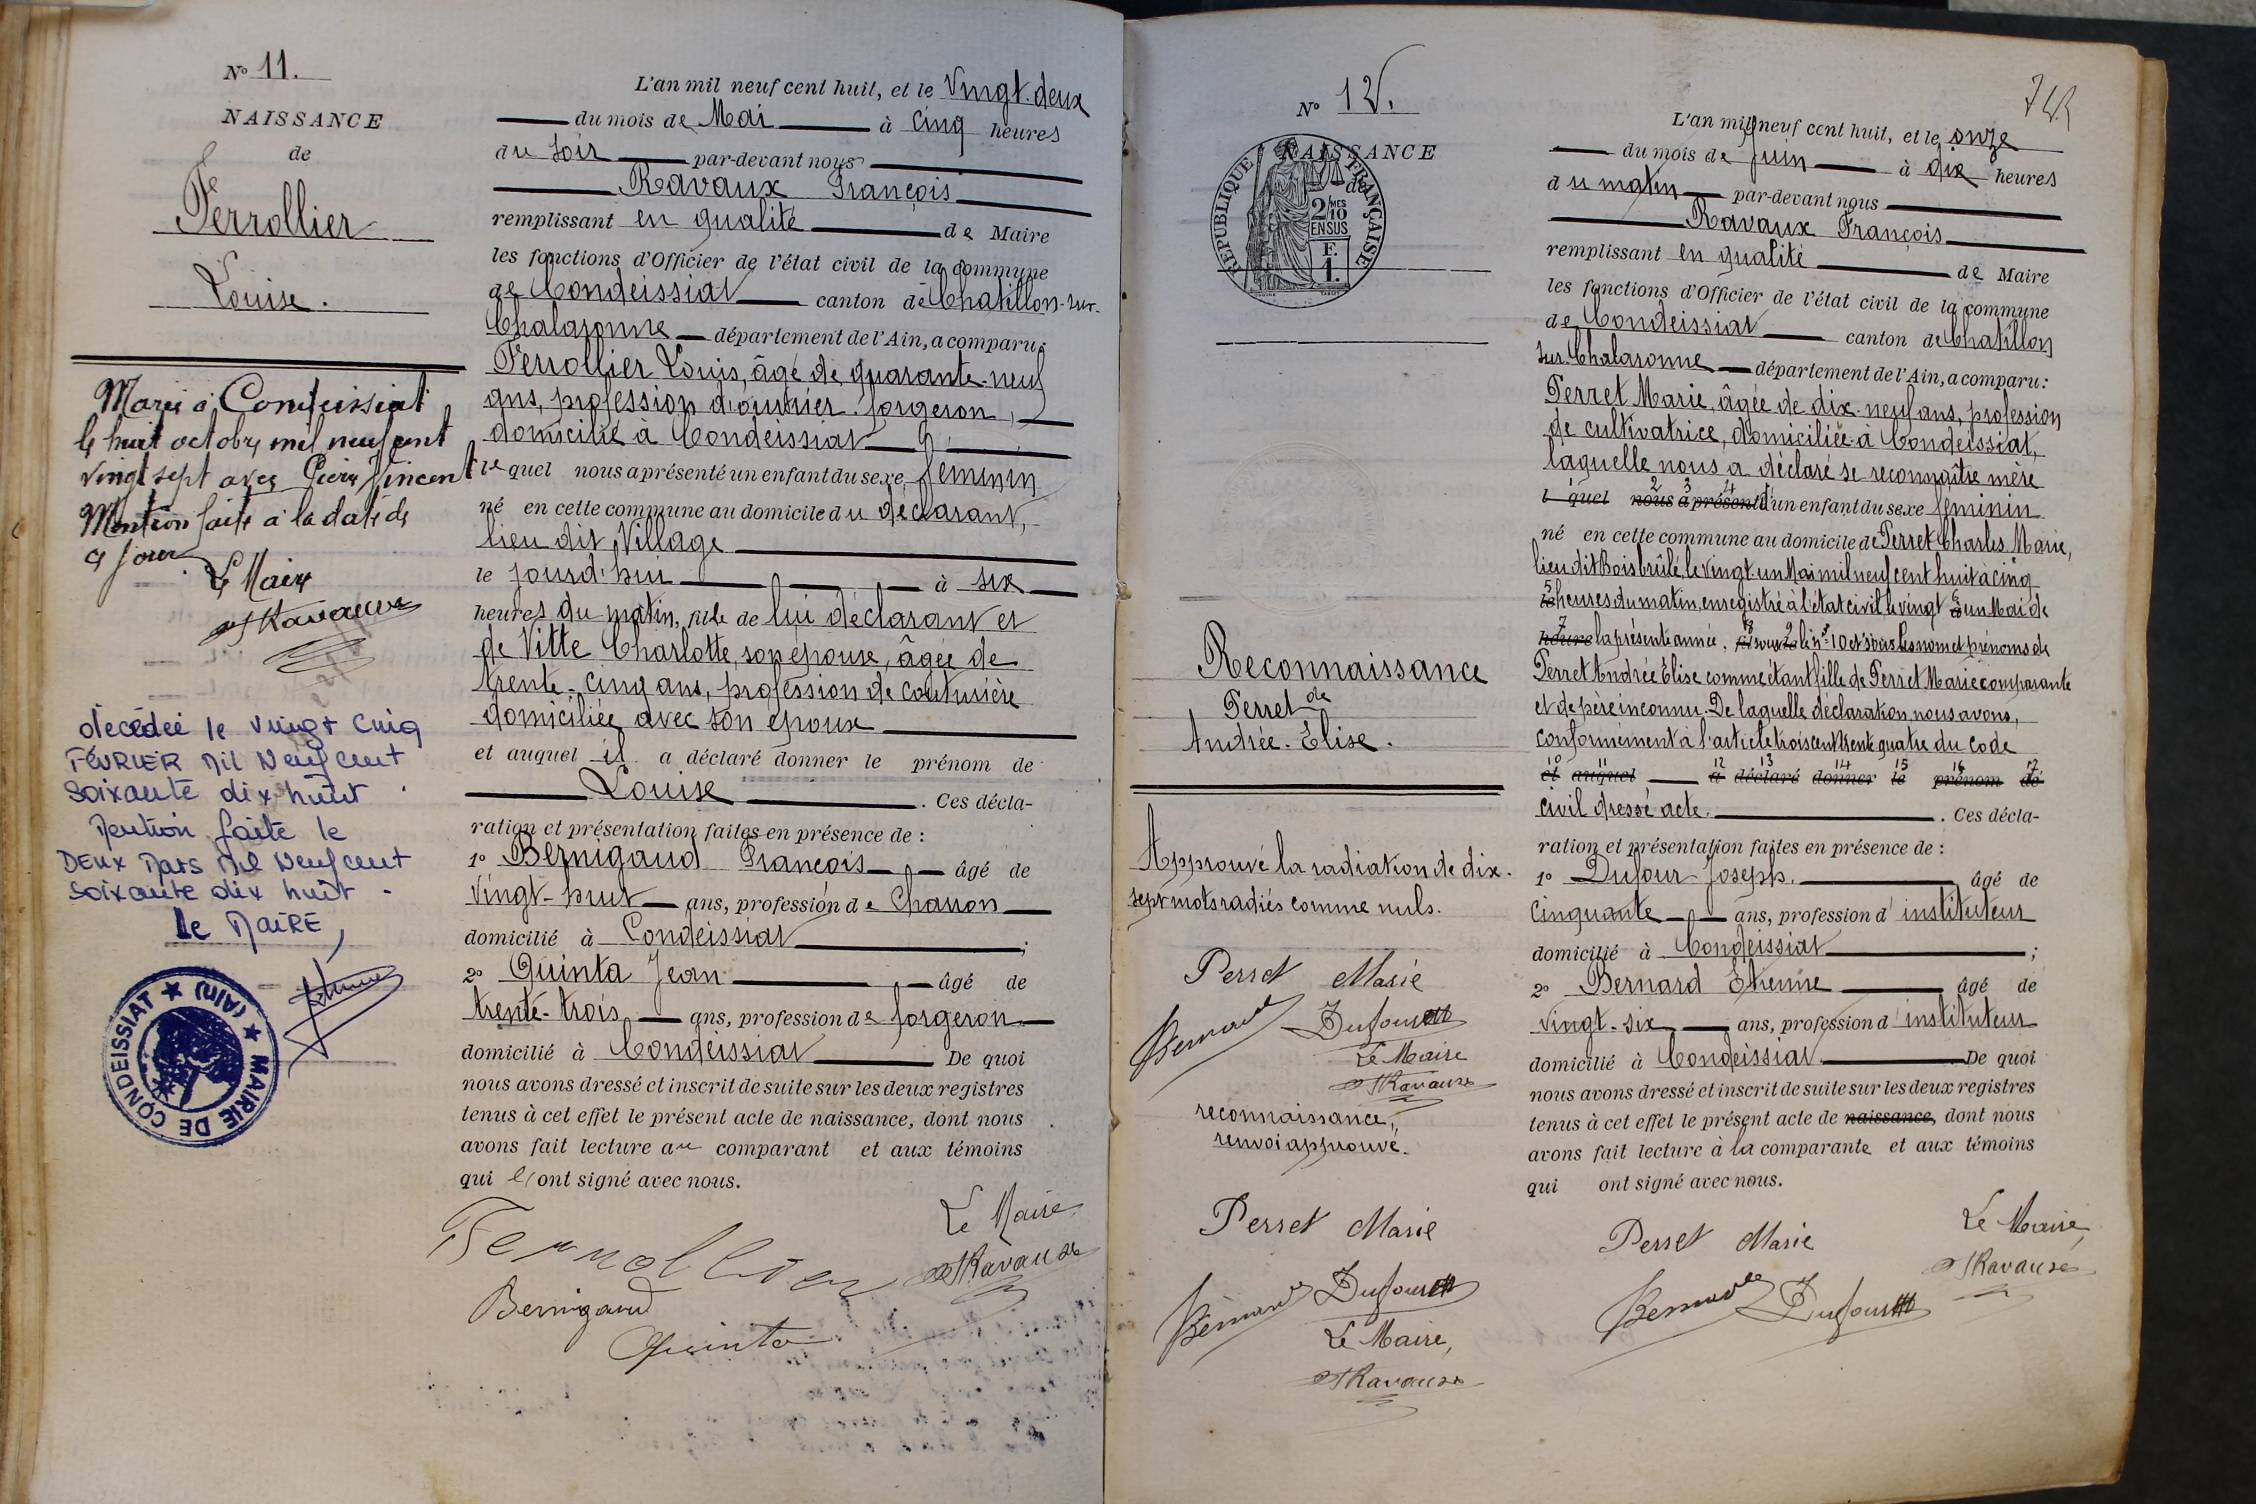 N° 11.
NAISSANCE
de
Ferrollier
Louise.
Mariée à Condeissiat
le huit octobre mil neuf cent
vingt sept avec Pierre Vincent
Mention faite à la date de
ce jour
Le Maire
Ravaux
décédée le vingt cinq
FÉVRIER Mil Neuf cent
soixante dix huit.
Mention faite le
DEUX Mars Mil Neuf cent
soixante dix huit.
le MAIRE,
MAIRIE DE CONDEISSIAT (AIN)
L'an mil neuf cent huit, et le vingt-deux
du mois de Mai à cinq heures
du soir par-devant nous
Ravaux François
remplissant en qualité de Maire
les fonctions d'Officier de l'état civil de la commune
de Condeissiat canton de Chatillon-sur-
Chalaronne département de l'Ain, a comparu:
Ferrollier Louis, âgé de quarante-neuf
ans, profession d'ouvrier forgeron,
domicilié à Condeissiat
lequel nous a présenté un enfant du sexe féminin
né en cette commune au domicile du déclarant,
lieu dit Village
le jourd'hui à six
heures du matin, fille de lui déclarant et
de Vitte Charlotte, son épouse, âgée de
trente-cinq ans, profession de couturière
domiciliée avec son époux
et auquel il a déclaré donner le prénom de
Louise. Ces décla-
ration et présentation faites en présence de :
1° Bernigaud François âgé de
vingt-huit ans, profession de Charron
domicilié à Condeissiat;
2° Quinta Jean âgé de
trente-trois ans, profession de forgeron
domicilié à Condeissiat De quoi
nous avons dressé et inscrit de suite sur les deux registres
tenus à cet effet le présent acte de naissance, dont nous
avons fait lecture au comparant et aux témoins
qui ont signé avec nous.
Le Maire
Ferrollier Ravaux
Bernigaud
Quinta
N° 12.
NAISSANCE
de
RÉPUBLIQUE FRANÇAISE
2/10 MES
EN SUS
F.
1.
Reconnaissance
de
Perret
Andrée-Elise.
Approuvé la radiation de dix-
sept mots radiés comme nuls.
Perret Marie
Bernard Dufour
Le Maire
Ravaux
reconnaissance,
renvoi approuvé.
Perret Marie
Bernard Dufour
Le Maire,
Ravaux
L'an mil neuf cent huit, et le onze
du mois de Juin à dix heures
du matin par-devant nous
Ravaux François
remplissant en qualité de Maire
les fonctions d'Officier de l'état civil de la commune
de Condeissiat canton de Chatillon
sur Chalaronne département de l'Ain, a comparu:
Perret Marie, âgée de dix-neuf ans, profession
de cultivatrice, domiciliée à Condeissiat,
laquelle nous a déclaré se reconnaître mère
l quel nous a présenté d'un enfant du sexe féminin
né en cette commune au domicile de Perret Charles Marie,
lieu dit Bois brûlé, le vingt-un Mai mil neuf cent huit à cinq
le heures du matin, enregistré à l'état civil le vingt à un Mai de
heure la présente année, fil sous le n° 10 et sous les nom et prénoms de
Perret Andrée Elise comme étant fille de Perret Marie comparante
et de père inconnu. De laquelle déclaration nous avons,
conformément à l'article trois cent trente quatre du code
et auquel a déclaré donner le prénom de
civil dressé acte. Ces décla-
ration et présentation faites en présence de :
1° Dufour Joseph. âgé de
cinquante ans, profession d'instituteur
domicilié à Condeissiat;
2° Bernard Etienne âgé de
vingt-six ans, profession d'instituteur
domicilié à Condeissiat De quoi
nous avons dressé et inscrit de suite sur les deux registres
tenus à cet effet le présent acte de naissance, dont nous
avons fait lecture à la comparante et aux témoins
qui ont signé avec nous.
Perret Marie Le Maire,
Bernard Dufour Ravaux